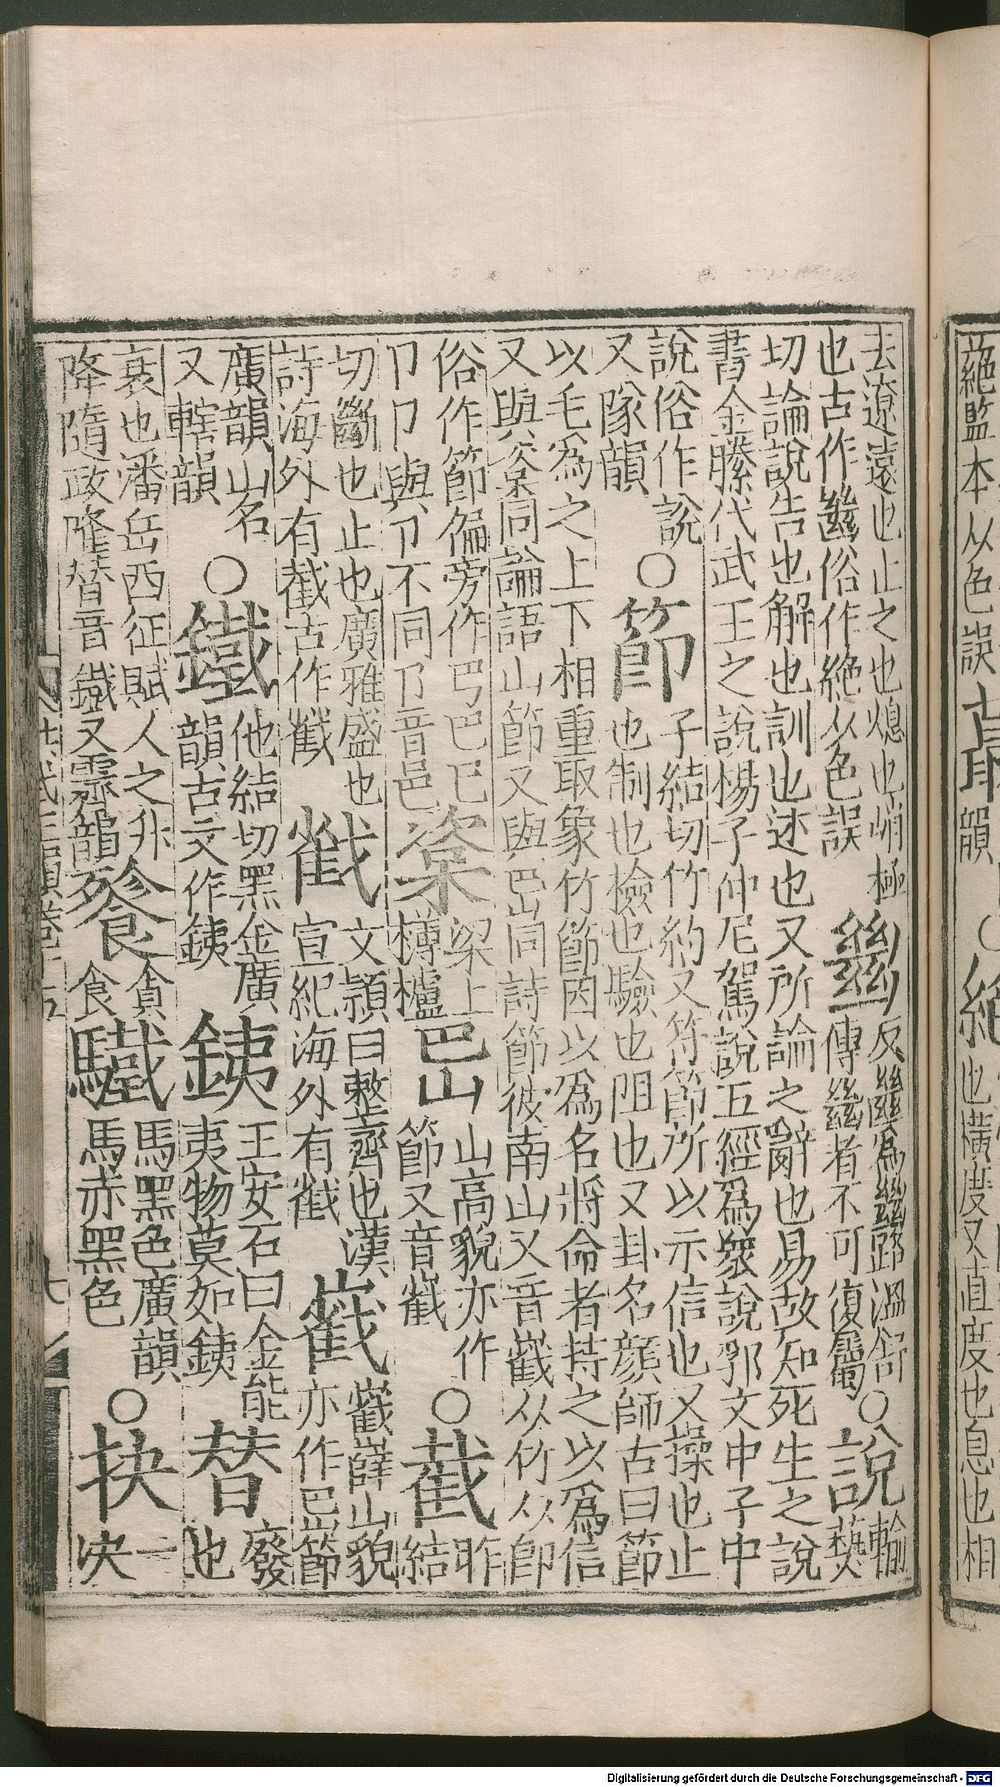 去遼遠也止之也熄也峭極
也古作𢇍俗作絶从色誤
𢇍
反𢇍爲𢇇路溫舒
傳𢇍者不可復屬
○說
輸
爇
切論說告也解也訓也述也又所論之辭也易故知死生之說
書金縢代武王之說楊子仲尼駕說五經爲衆說郭文中子中
說俗作說
又隊韻
○節
子結切竹約又符節所以示信也又操也止
也制也檢也驗也阻也又卦名顔師古曰節
以毛爲之上下相重取象竹節因以爲名將命者持之以爲信
又與楶同論語山節又與㠮同詩節彼南山又音巀从竹从卽
俗作節偏旁作㔾巴巳
卩卩與卪不同卪音邑
楶
梁上
欂櫨
㠮
山高貌亦作
節又音巀
○截
昨
結
切斷也止也廣雅盛也
詩海外有截古作𢧵
𢧵
文頴曰整齊也漢
宣紀海外有𢧵
巀
巀嶭山貌
亦作㠮節
廣韻山名
又轄韻
○鐵
他結切黑金廣
韻古文作銕
銕
王安石曰金能
夷物莫如銕
替
廢
也
衰也潘岳西征賦人之升
降隋政隆替音鐵又霽韻
飻
貪
食
驖
馬黑色廣韻
馬赤黑色
○抉
一
決
絶監本从色誤
韻
○絶
也橫度又直度也息也相
Digitalisierung gefördert durch die Deutsche Forschungsgemeinschaft - DFG